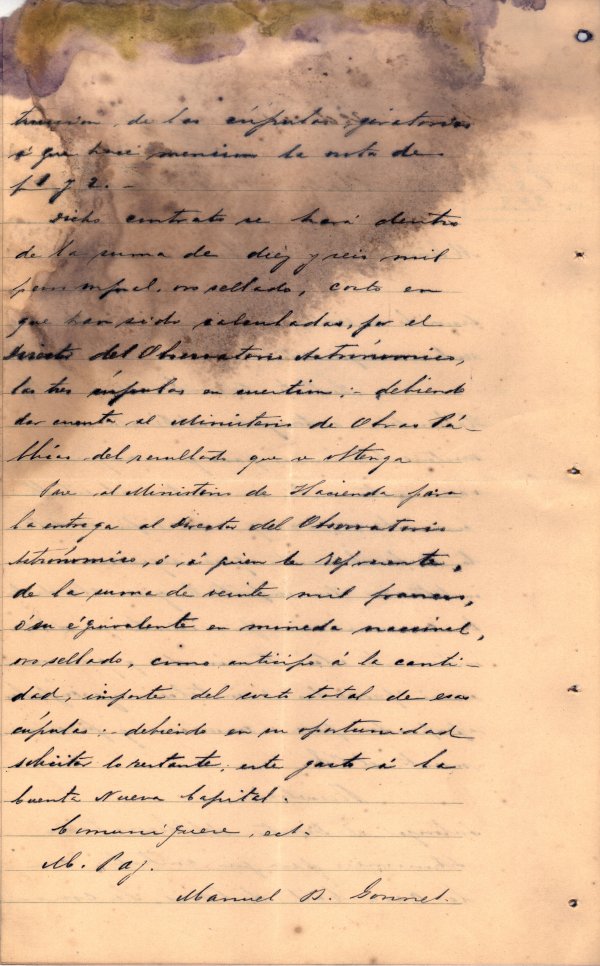 truccion de las cúpulas giratorias
á que hace mencion la nota de
f 1 y 2. -
Dicho contrato se hará dentro
de la suma de diez y seis mil
pesos m/nal. oro sellado, costo en
que han sido calculadas, por el
Director del Observatorio Astrónomico,
las tres cúpulas en cuestion; - debiendo
dar cuenta al Ministerio de Obras Pú-
blicas del resultado que se obtenga
Pase al Ministerio de Hacienda para
la entrega al Director del Observatorio
Astrónomico, ó á quien le represente,
de la suma de veinte mil francos,
ó su équivalente en moneda nacional,
oro sellado, como anticipo á la canti-
dad, importe del costo total de esas
cúpulas; debiendo en su oportunidad
solicitar lo restante; este gasto á la
Cuenta Nueva Capital.
Comuniquese, ect.
M. Paz.
Manuel B. Gonnet.